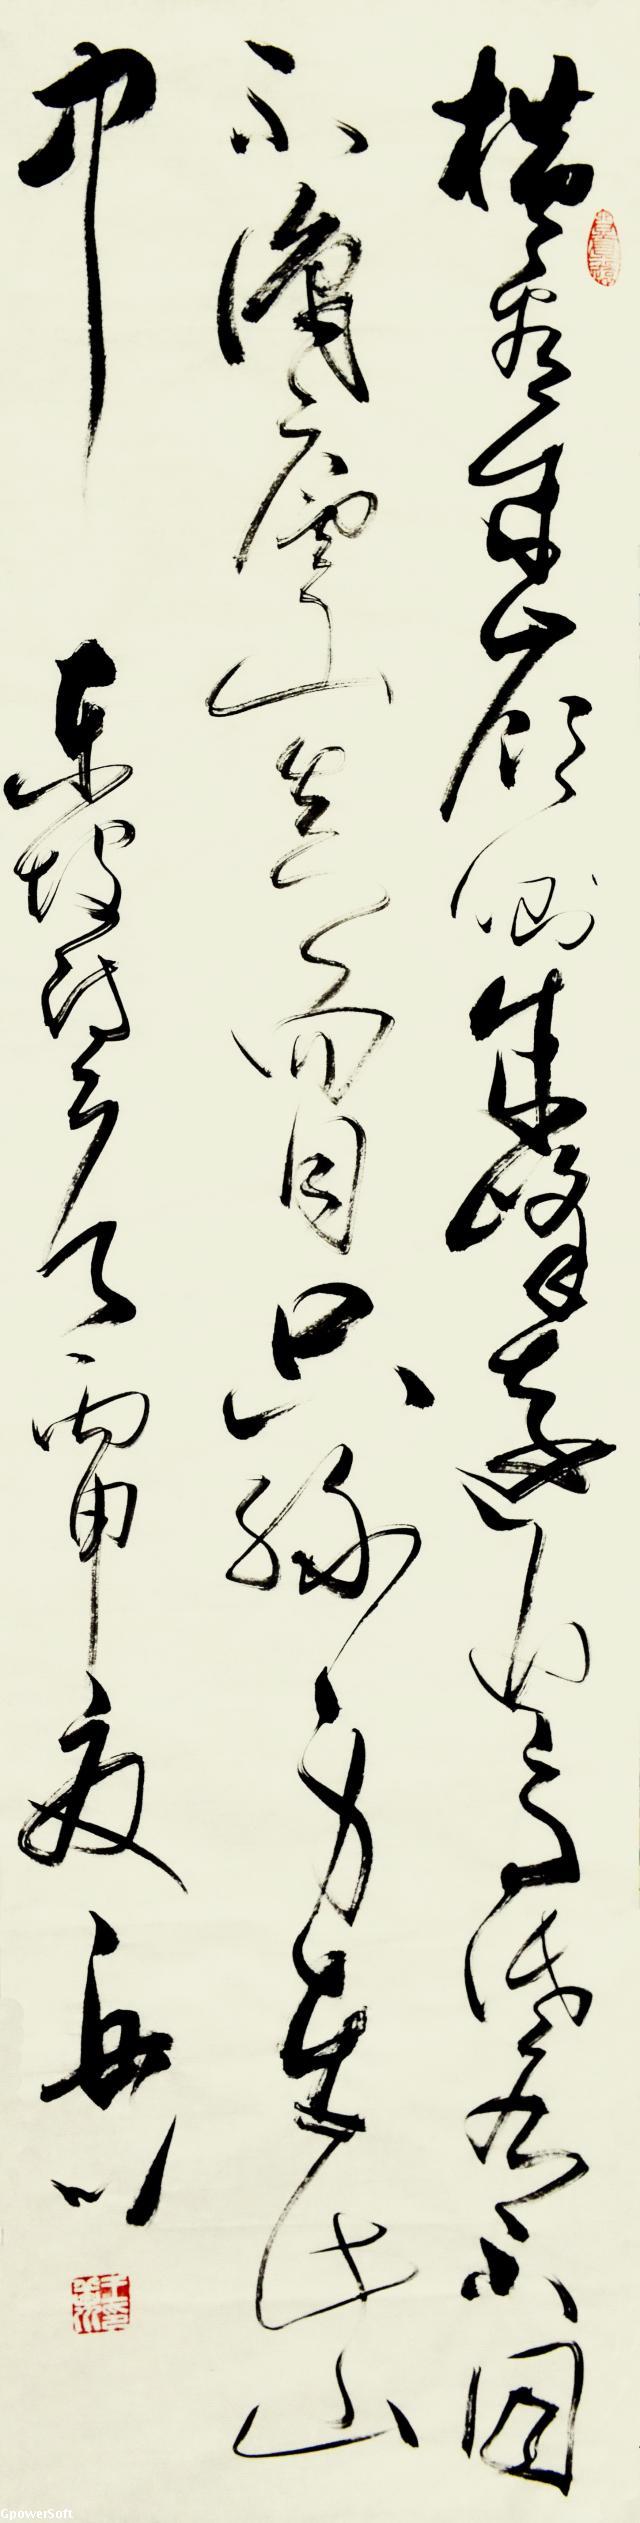 横看成嶺側成峰遠近高低各不同
不識廬山真面目只緣身在此山
中 東坡詩 丙申夏
GpowerSoft